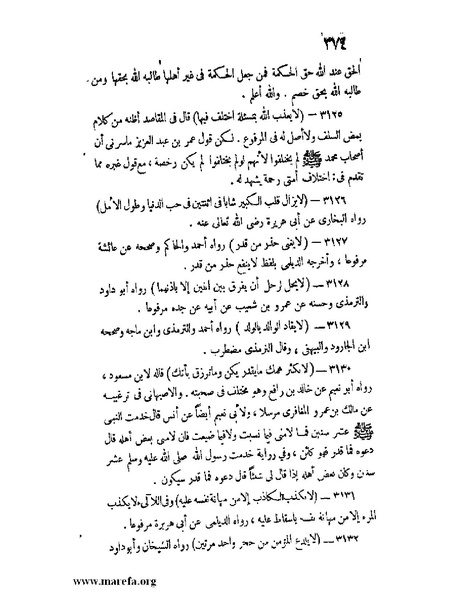 ٣٧٤
الحق عند الله حق الحكمة فمن جعل الحكمة فى غير أهلها طالبه الله بحقها ومن
طالبه الله بحق خصم . والله أعلم .
٣١٢٥ – (لايعذب الله بمسئلة اختلف فيها) قال فى المقاصد أظنه من كلام
بعض السلف ولاأصل له فى المرفوع . نكن قول عمر بن عبد العزيز ماسرنى أن
أصحاب محمد ﷺ لم يختلفوا لأنهم لولم يختلفوا لم يكن رخصة ، مع قول غيره مما
تقدم فى : اختلاف أمتى رحمة يشهد له .
٣١٢٦ – (لايزال قلب الكبير شابا فى اثنتين فى حب الدنيا وطول الأمل)
رواه البخارى عن أبى هريرة رضى الله تعالى عنه .
٣١٢٧ – (لايغنى حذر من قدر) رواه أحمد والحاكم وصححه عن عائشة
مرفوعا ، وأخرجه الديلمى بلفظ لاينفع حذر من قدر .
٣١٢٨ – (لايحل لرجل أن يفرق بين اثنين إلا باذنهما) رواه أبو داود
والترمذى وحسنه عن عمرو بن شعيب عن أبيه عن جده مرفوعا .
٣١٢٩ – (لايقاد الوالد بالولد) رواه أحمد والترمذى وابن ماجه وصححه
ابن الجارود والبيهقى ، وقال الترمذى مضطرب .
٣١٣٠ – (لايكثر همك مايقدر يكن وماترزق يأتك) قاله لابن مسعود ،
رواه أبو نعيم عن خالد بن رافع وهو مختلف فى صحبته . والاصبهانى فى ترغيبه
عن مالك بن عمرو المغافرى مرسلا ، ولأبى نعيم أيضاً عن أنس قال خدمت النبى
ﷺ عشر سنين فما لامنى فيما نسيت ولافيما ضيعت فان لامنى بعض أهله قال
دعوه فما قدر فهو كائن ، وفى رواية خدمت رسول الله صلى الله عليه وسلم عشر
سنين وكان بعض أهله إذا قال لى شيئاً قال دعوه فما قدر سيكون .
٣١٣١ – (لايكذب الكاذب إلا من مهانة نفسه عليه) وفى اللآلى لايكذب
المرء إلا من مهانة نفسه باسقاط عليه ، رواه الديلمى عن أبى هريرة مرفوعا .
٣١٣٢ – (لايلدغ المؤمن من جحر واحد مرتين) رواه الشيخان وأبو داود
www.marefa.org